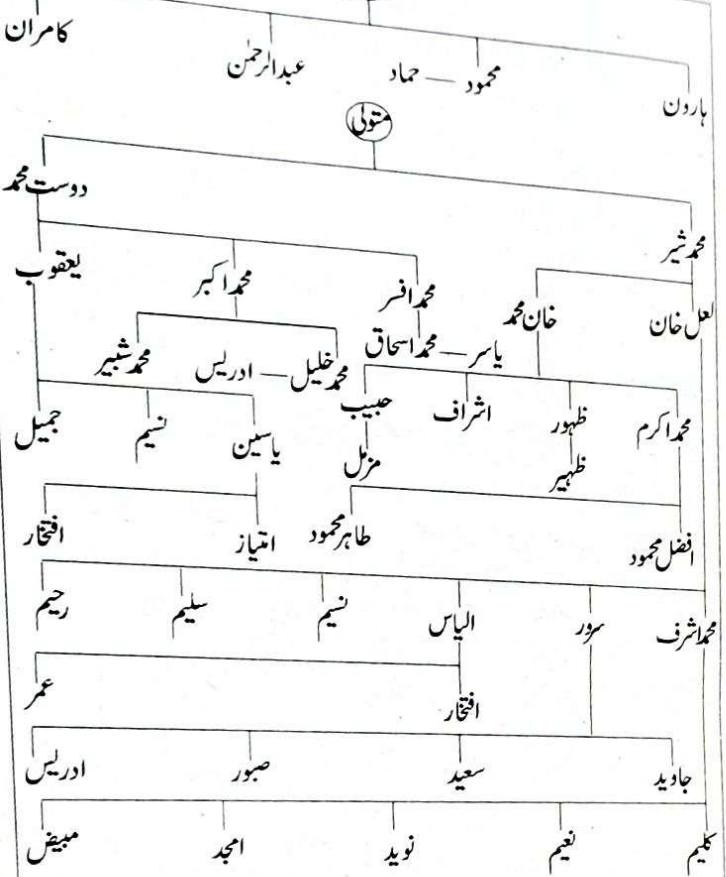 کامران
ہارون محمود — حماد عبدالرحمٰن
متولی
محمد شیر دوست محمد
لعل خان خان محمد محمد افسر محمد اکبر یعقوب
یاسر — محمد اسحاق محمد خلیل — ادریس محمد شبیر
محمد اکرم ظہور اشراف حبیب یاسین نسیم جمیل
ظہیر مزمل
افضل محمود طاہر محمود امتیاز افتخار
محمد اشرف سرور الیاس نسیم سلیم رحیم
افتخار عمر
جاوید سعید صبور ادریس
کلیم نعیم نوید امجد مبیض